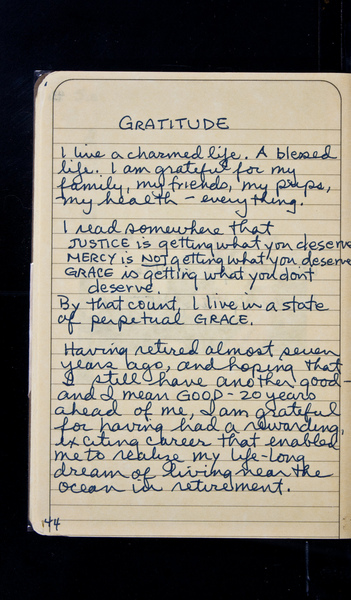 GRATITUDE
I live a charmed life. A blessed
life. I am grateful for my
family, my friends, my pups,
my health - everything.
I read somewhere that
JUSTICE is getting what you deserve
MERCY is NOT getting what you deserve
GRACE is getting what you dont
deserve.
By that count, I live in a state
of perpetual GRACE.
Having retired almost seven
years ago, and hoping that
I still have another good -
and I mean GOOD - 20 years
ahead of me, I am grateful
for having had a rewarding,
exciting career that enabled
me to realize my life-long
dream of living near the
ocean in retirement.
144